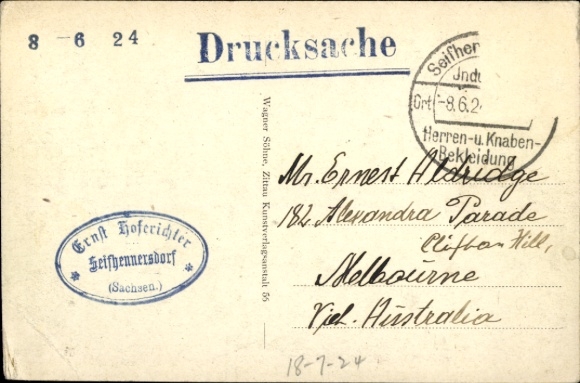 8 - 6 24
Drucksache
Seifhen
Indu
Ort
-8.6.2
Herren-u.Knaben-
Bekleidung
Wagner Söhne, Zittau Kunstverlagsanstalt 55
Mr. Ernest Aldridge
182 Alexandra Parade
Clifton Hill,
Melbourne
Vict. Australia
Ernst Hoferichter
Seifhennersdorf
(Sachsen.)
18-7-24